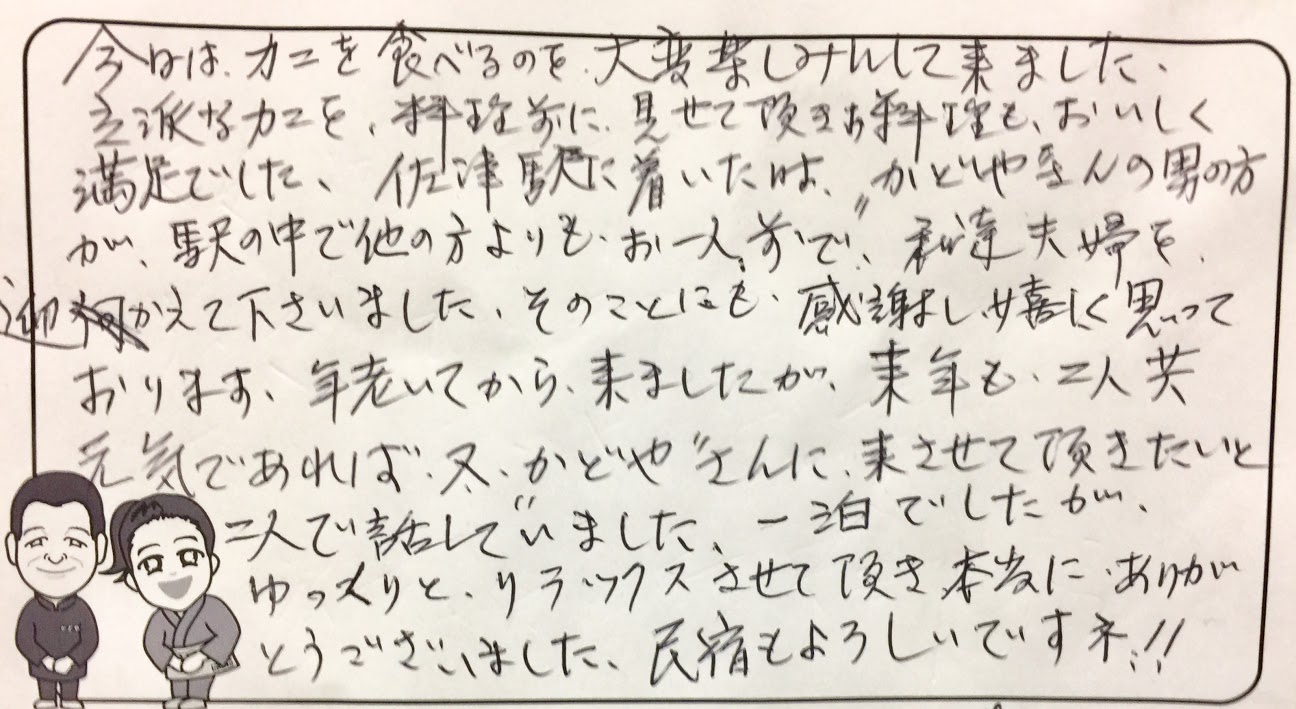 今日は、カニを食べるのを、大変楽しみんして来ました、
立派なカニを、料理前に、見せて頂きお料理も、おいしく
満足でした、佐津駅に着いたは、"かどやさんの男の方
が、駅の中で他の方よりも、お一人前で"、私達夫婦を
迎かえて下さいました、そのことにも、感謝し嬉しく思って
おります、年老いてから、来ましたが、来年も、二人共
元気であれば、冬、かどや"さんに、来させて頂きたいと
二人で話して"いました、一泊でしたが、
ゆっくりと、リラックスさせて頂き本当に、ありが
とうございました、民宿もよろしいですネ!!